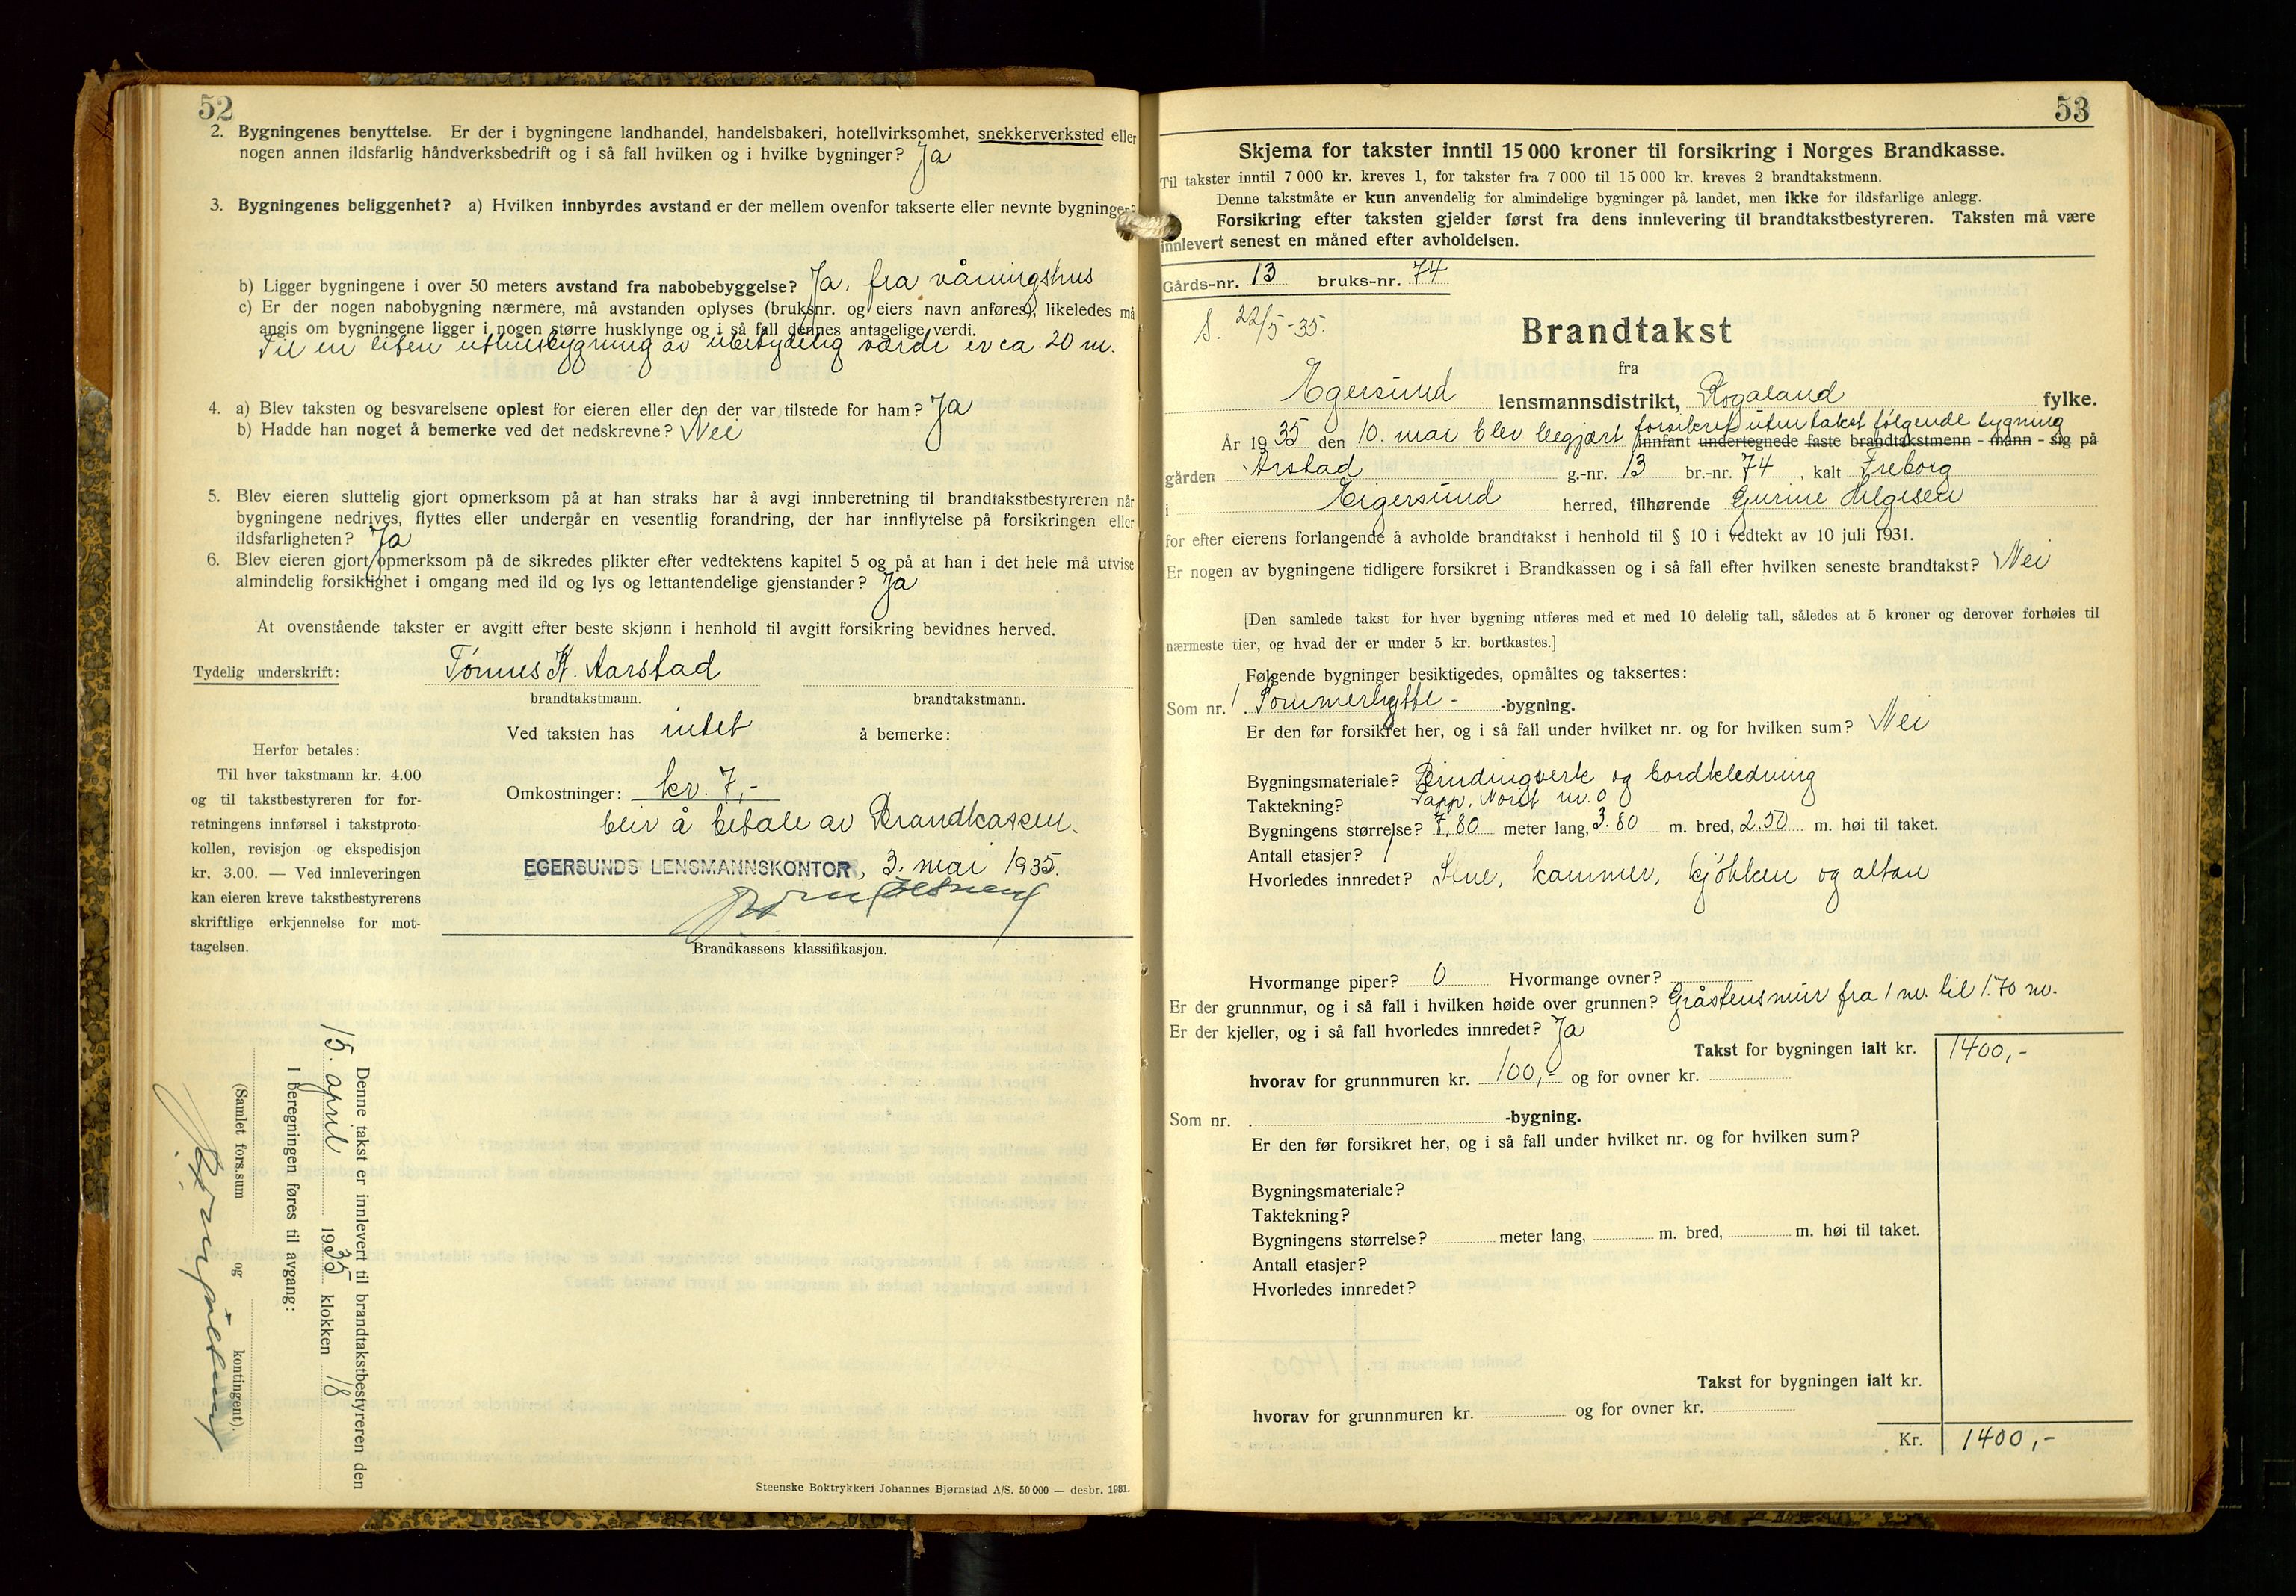 52
2. Bygningenes benyttelse. Er der i bygningene landhandel, handelsbakeri, hotellvirksomhet, snekkerverksted eller
nogen annen ildsfarlig håndverksbedrift og i så fall hvilken og i hvilke bygninger? Ja
3. Bygningenes beliggenhet? a) Hvilken innbyrdes avstand er der mellem ovenfor takserte eller nevnte bygninger?
b) Ligger bygningene i over 50 meters avstand fra nabobebyggelse? Ja, fra våningshus
c) Er der nogen nabobygning nærmere, må avstanden oplyses (bruksnr. og eiers navn anføres), likeledes må
angis om bygningene ligger i nogen større husklynge og i så fall dennes antagelige verdi.
Til en liten uthusbygning av ubetydelig værdi er ca. 20 m.
4. a) Blev taksten og besvarelsene oplest for eieren eller den der var tilstede for ham? Ja
b) Hadde han noget å bemerke ved det nedskrevne? Nei
5. Blev eieren sluttelig gjort opmerksom på at han straks har å avgi innberetning til brandtakstbestyreren når
bygningene nedrives, flyttes eller undergår en vesentlig forandring, der har innflytelse på forsikringen eller
ildsfarligheten? Ja
6. Blev eieren gjort opmerksom på de sikredes plikter efter vedtektens kapitel 5 og på at han i det hele må utvise
almindelig forsiktighet i omgang med ild og lys og lettantendelige gjenstander? Ja
At ovenstående takster er avgitt efter beste skjønn i henhold til avgitt forsikring bevidnes herved.
Tydelig underskrift: Tönnes K. Aarstad
brandtakstmann. brandtakstmann.
Ved taksten has intet å bemerke:
Herfor betales:
Til hver takstmann kr. 4.00
og til takstbestyreren for for-
retningens innførsel i takstproto-
kollen, revisjon og ekspedisjon
kr. 3.00. — Ved innleveringen
kan eieren kreve takstbestyrerens
skriftlige erkjennelse for mot-
tagelsen.
Omkostninger: kr. 7,-
blir å betale av Brandkassen.
EGERSUNDS LENSMANNSKONTOR, 3. mai 1935.
Brandkassens klassifikasjon.
Denne takst er innlevert til brandtakstbestyreren den
15. april 1935 klokken 18
I beregningen føres til avgang:
(Samlet fors.sum og kontingent).
Steenske Boktrykkeri Johannes Bjørnstad A/S. 50 000 — desbr. 1931.
53
Skjema for takster inntil 15 000 kroner til forsikring i Norges Brandkasse.
Til takster inntil 7 000 kr. kreves 1, for takster fra 7 000 til 15 000 kr. kreves 2 brandtakstmenn.
Denne takstmåte er kun anvendelig for almindelige bygninger på landet, men ikke for ildsfarlige anlegg.
Forsikring efter taksten gjelder først fra dens innlevering til brandtakstbestyreren. Taksten må være
innlevert senest en måned efter avholdelsen.
Gårds-nr. 13 bruks-nr. 74
S. 22/5-35.
Brandtakst
fra
Egersund lensmannsdistrikt, Rogaland fylke.
forsikret uten takst følgende bygning
År 1935 den 10. mai blev begjært innfant undertegnede faste brandtakstmenn - mann - sig på
gården Årstad g.-nr. 13 br.-nr. 74, kalt Freborg
i Eigersund herred, tilhørende Gurine Helgesen
for efter eierens forlangende å avholde brandtakst i henhold til § 10 i vedtekt av 10 juli 1931.
Er nogen av bygningene tidligere forsikret i Brandkassen og i så fall efter hvilken seneste brandtakst? Nei
[Den samlede takst for hver bygning utføres med et med 10 delelig tall, således at 5 kroner og derover forhøies til
nærmeste tier, og hvad der er under 5 kr. bortkastes.]
Følgende bygninger besiktigedes, opmåltes og taksertes:
Som nr. 1 Sommerhytte- -bygning.
Er den før forsikret her, og i så fall under hvilket nr. og for hvilken sum? Nei
Bygningsmateriale? Bindingverk og bordkledning
Taktekning? Papp, Norit nr. 0
Bygningens størrelse? 7,80 meter lang, 3.80 m. bred, 2.50 m. høi til taket.
Antall etasjer? 1
Hvorledes innredet? Stue, kammer, kjøkken og altan
Hvormange piper? 0 Hvormange ovner?
Er der grunnmur, og i så fall i hvilken høide over grunnen? Gråstensmur fra 1 m. til 1.70 m.
Er der kjeller, og i så fall hvorledes innredet? Ja
Takst for bygningen ialt kr. 1400,-
hvorav for grunnmuren kr. 100,- og for ovner kr.
Som nr. -bygning.
Er den før forsikret her, og i så fall under hvilket nr. og for hvilken sum?
Bygningsmateriale?
Taktekning?
Bygningens størrelse? meter lang, m. bred, m. høi til taket.
Antall etasjer?
Hvorledes innredet?
Takst for bygningen ialt kr.
hvorav for grunnmuren kr. og for ovner kr.
Kr. 1400,-